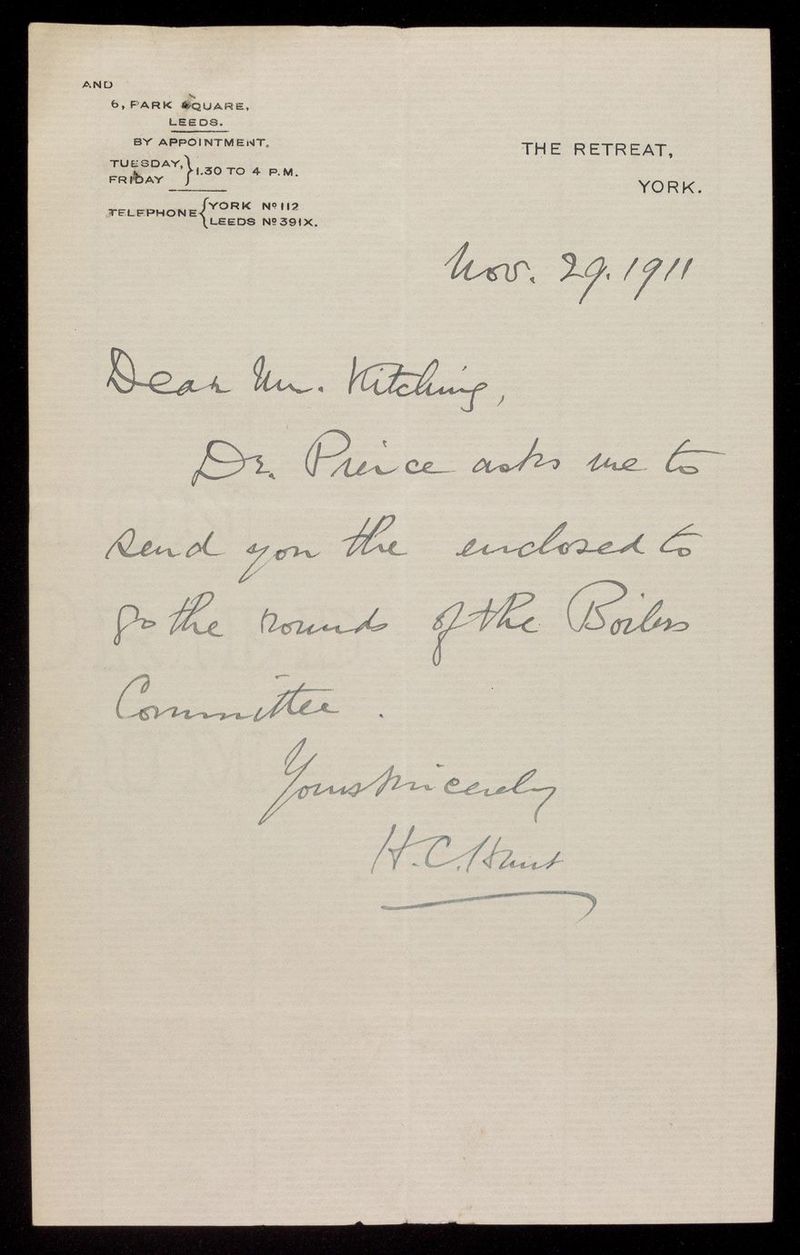 AND
6, PARK SQUARE,
LEEDS.
BY APPOINTMENT.
TUESDAY, } 1.30 TO 4 P.M.
FRIDAY
TELEPHONE { YORK Nº 112
LEEDS Nº 391X.
THE RETREAT,
YORK.
Nov. 29. 1911
Dear Mr. Kitching,
Dr. Pierce asks me to
send you the enclosed to
go the rounds of the Boilers
Committee.
Yours sincerely
H. C. Hunt